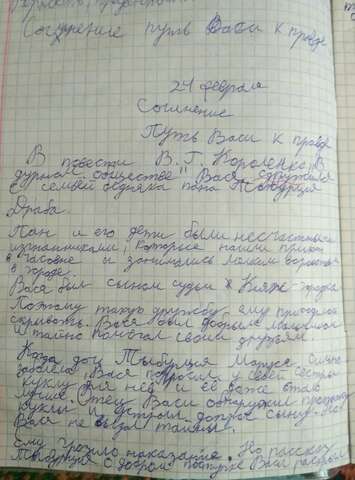 Сочинение путь Васи к правде
24 февраля
Сочинение
Путь Васи к правде
В повести В. Г. Короленко "В
дурном обществе" Вася дружил
с семьёй бедняка пана Тыбурция
Драба.
Пан и его дети были несчастными
изгнанниками, которые нашли приют
в часовне и занимались мелким воровством
в городе.
Вася был сыном судьи Княж-городка
Поэтому такую дружбу ему приходилось
скрывать. Вася был добрым мальчиком
и тайно помогал своим друзьям.
Когда дочь Тыбурция Маруся сильно
заболела, Вася попросил у своей сестры
куклу для неё и ей даже стало
лучше. Отец Васи обнаружил пропажу
куклы и устроил допрос сыну. Но
Вася не выдал тайны.
Ему грозило наказание. Но рассказ
Тыбурция о добром поступке Васи